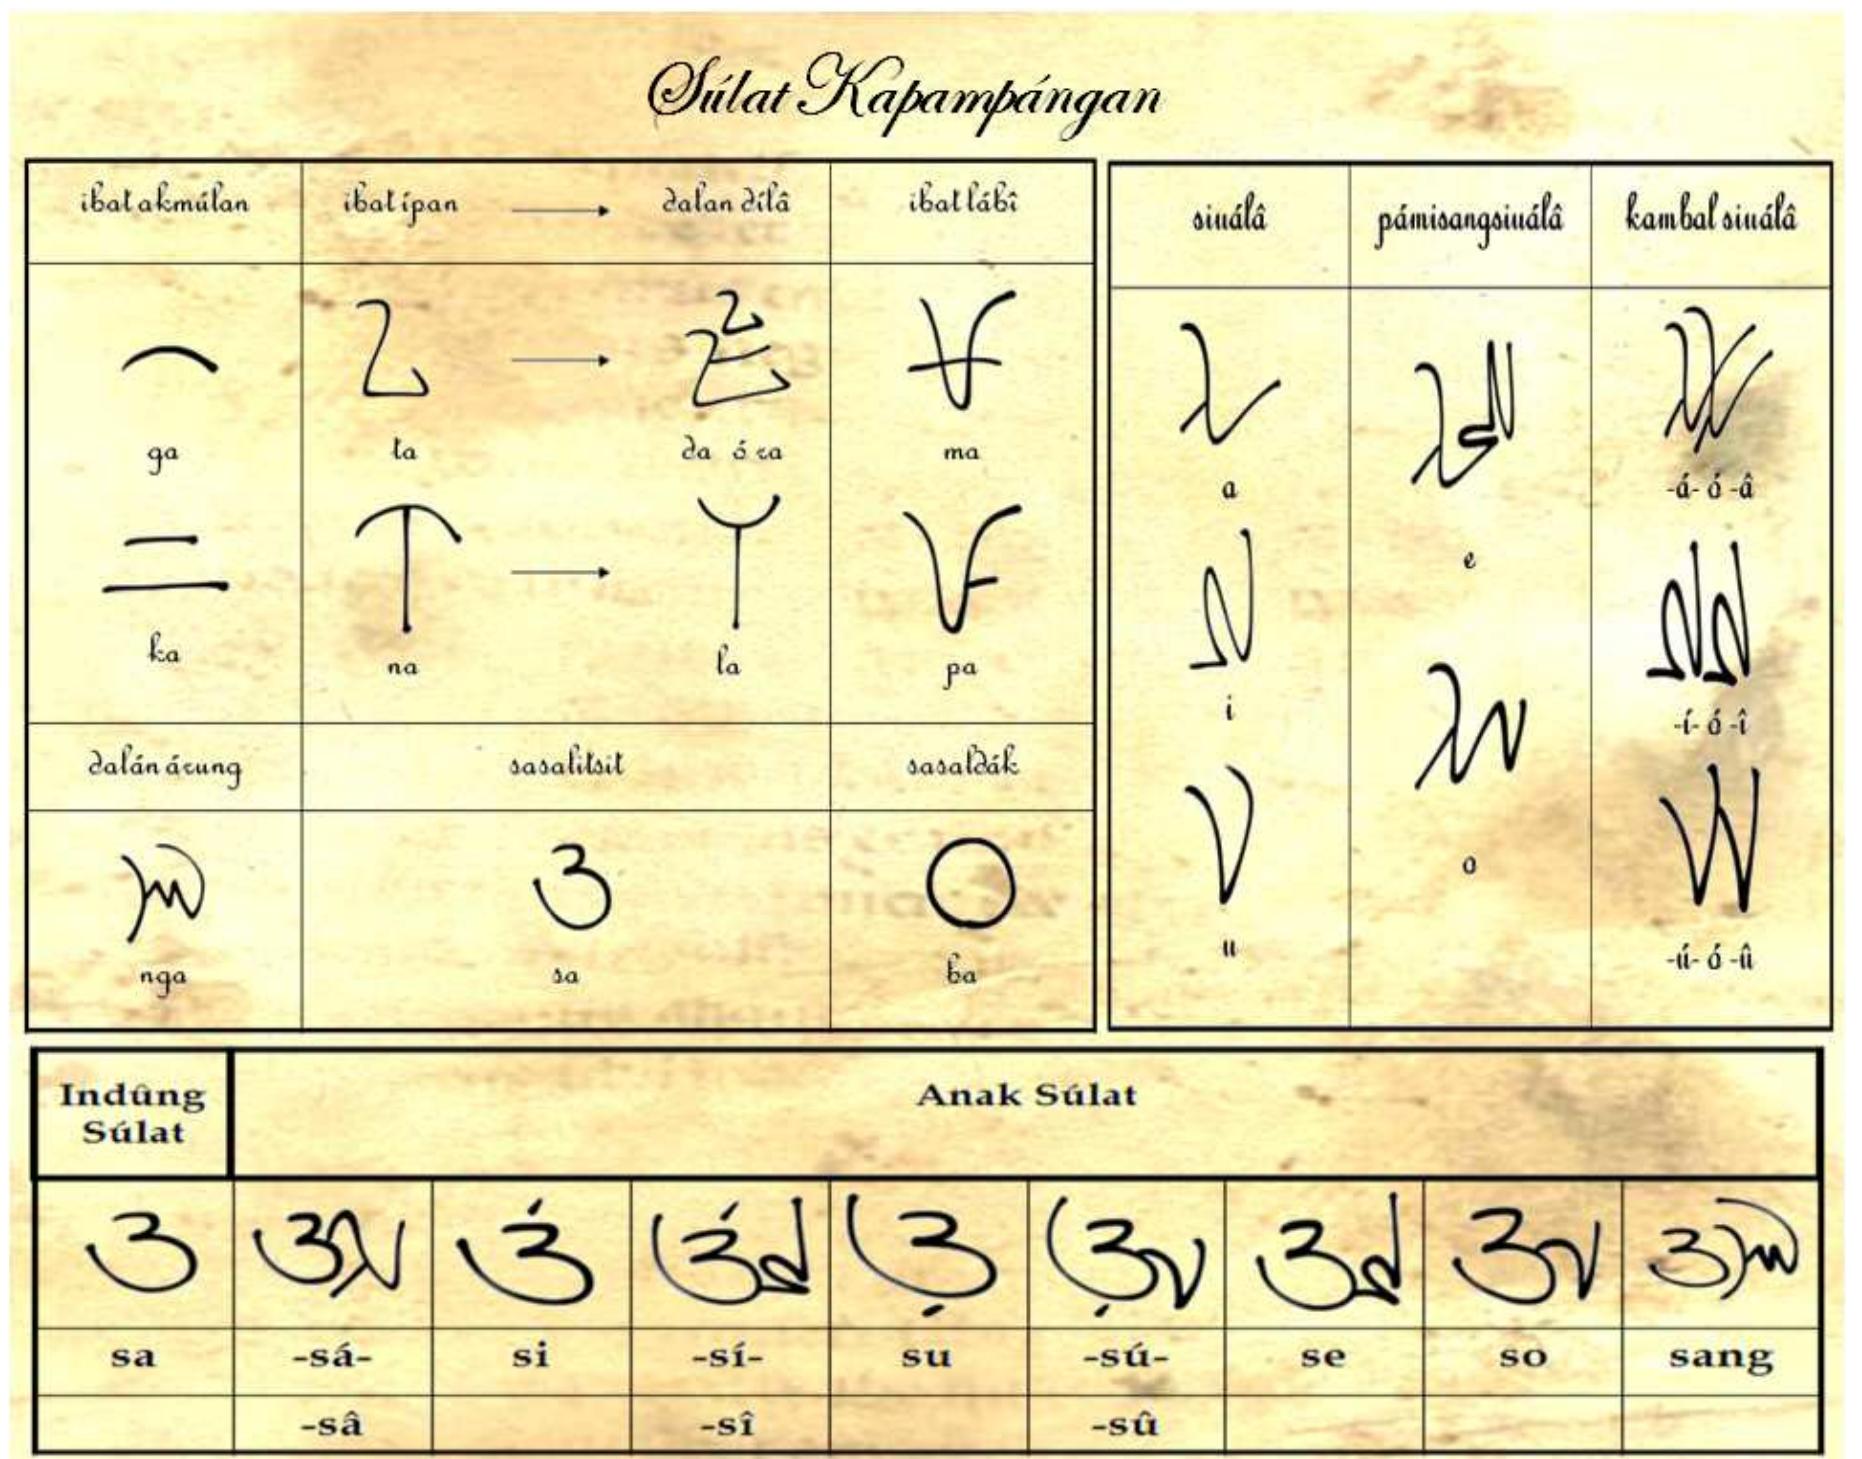 Súlat Kapampángan
ibat akmúlan
ibat ípan
dalan dílâ
ibat lábî
ga
ta
da ó ra
ma
ka
na
la
pa
dalán árung
sasalitsit
sasaldák
nga
sa
ba
siuálâ
pámisangsiuálâ
kambal siuálâ
a
e
-á- ó -â
i
o
-í- ó -î
u
-ú- ó -û
Indûng Súlat
Anak Súlat
sa
-sá-
si
-sí-
su
-sú-
se
so
sang
-sâ
-sî
-sû